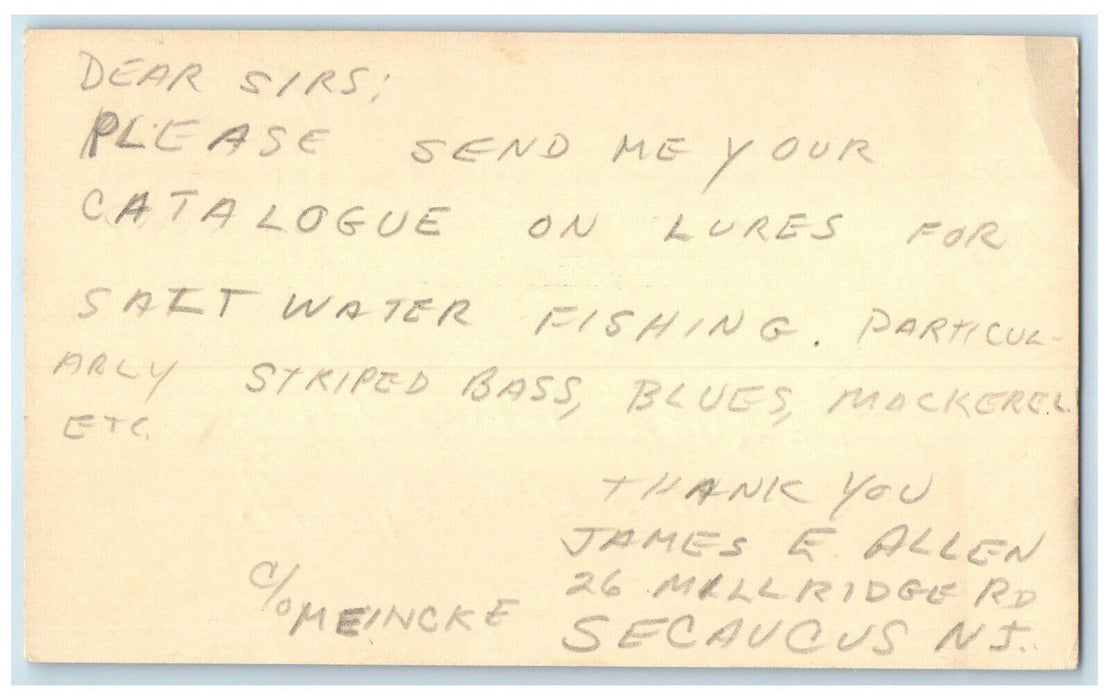 DEAR SIRS;
PLEASE SEND ME YOUR
CATALOGUE ON LURES FOR
SALT WATER FISHING. PARTICUL-
ARLY STRIPED BASS, BLUES, MACKEREL
ETC.
THANK YOU
JAMES E. ALLEN
26 MILLRIDGE RD
C/O MEINCKE
SECAUCUS NJ.